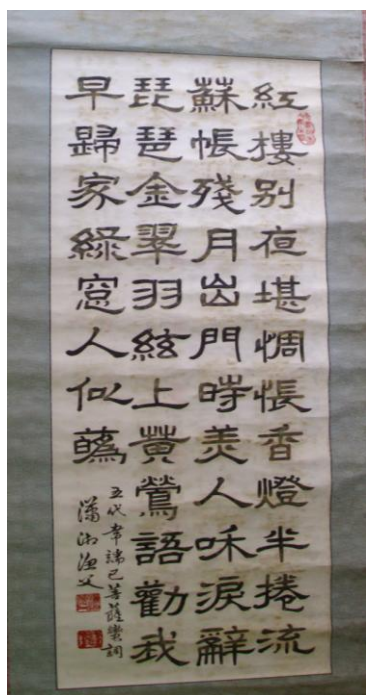 紅樓别夜堪惆悵香燈半捲流
蘇帳殘月出門時美人咊淚辭
琵琶金翠羽絃上黄鶯語勸我
早歸家綠窓人似蘤
五代韋端己菩薩蠻詞
瀟湘漁父